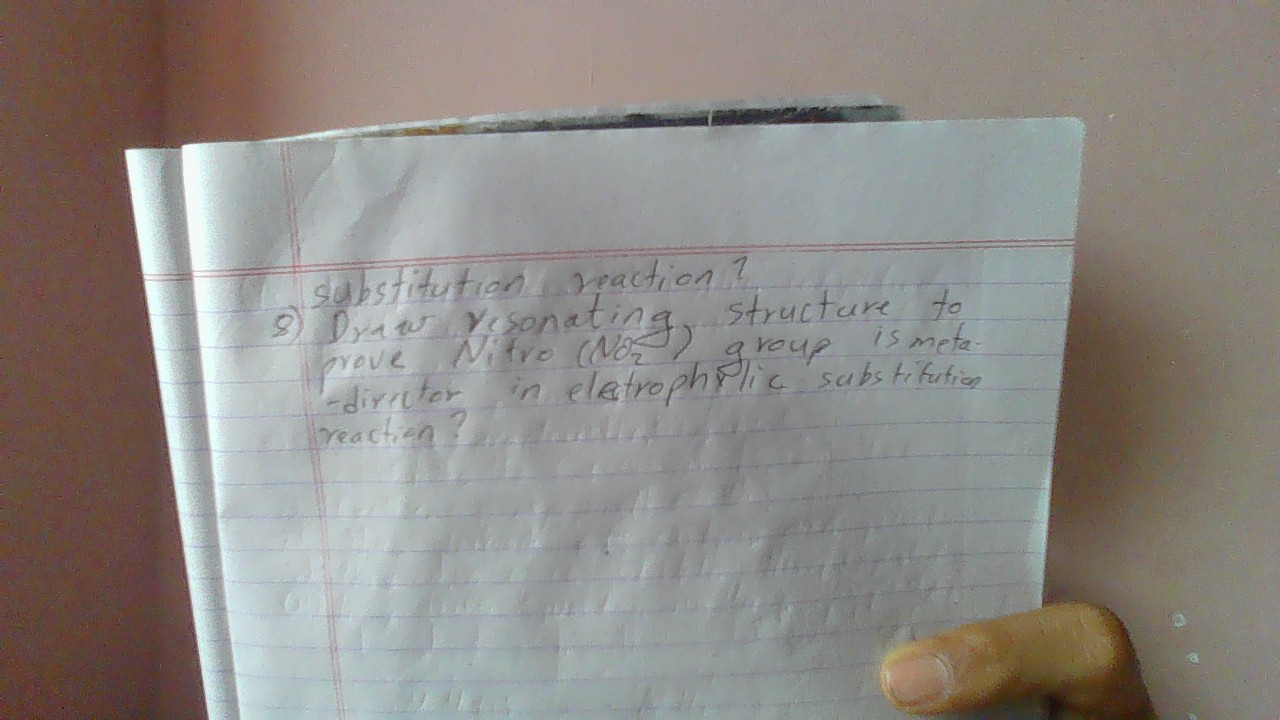 substitution reaction?
8) Draw resonating structure to
prove Nitro (NO₂⁻) group is meta-
-director in eletrophilic substitution
reaction?